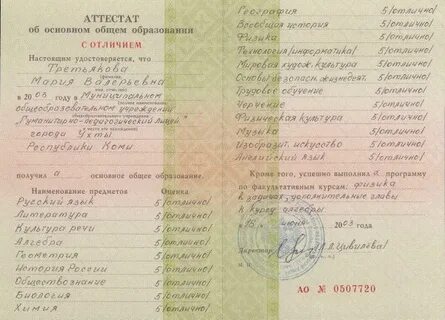 АТТЕСТАТ
об основном общем образовании
С ОТЛИЧИЕМ
Настоящим удостоверяется, что
Третьякова
Мария Валерьевна
в 2003 году в Муниципальном
общеобразовательном учреждении
"Гуманитарно-педагогический лицей"
города Ухты
Республики Коми
получил а основное общее образование.
Наименование предметов Оценка
Русский язык 5/отлично/
Литература 5/отлично/
Культура речи 5/отлично/
Алгебра 5/отлично/
Геометрия 5/отлично/
История России 5/отлично/
Обществознание 5/отлично/
Биология 5/отлично/
Химия 5/отлично/
География 5/отлично/
Всеобщая история 5/отлично/
Физика 5/отлично/
Технология/информатика/ 5/отлично/
Мировая худож. культура 5/отлично/
Основы безопасн. жизнедеят. 5/отлично/
Трудовое обучение 5/отлично/
Черчение 5/отлично/
Физическая культура 5/отлично/
Музыка 5/отлично/
Изобразит. искусство 5/отлично/
Английский язык 5/отлично/
Кроме того, успешно выполнил а программу
по факультативным курсам: физика
в задачах, дополнительные главы
к курсу алгебры
15 июня 2003 г.
Директор
М.П.
АО № 0507720